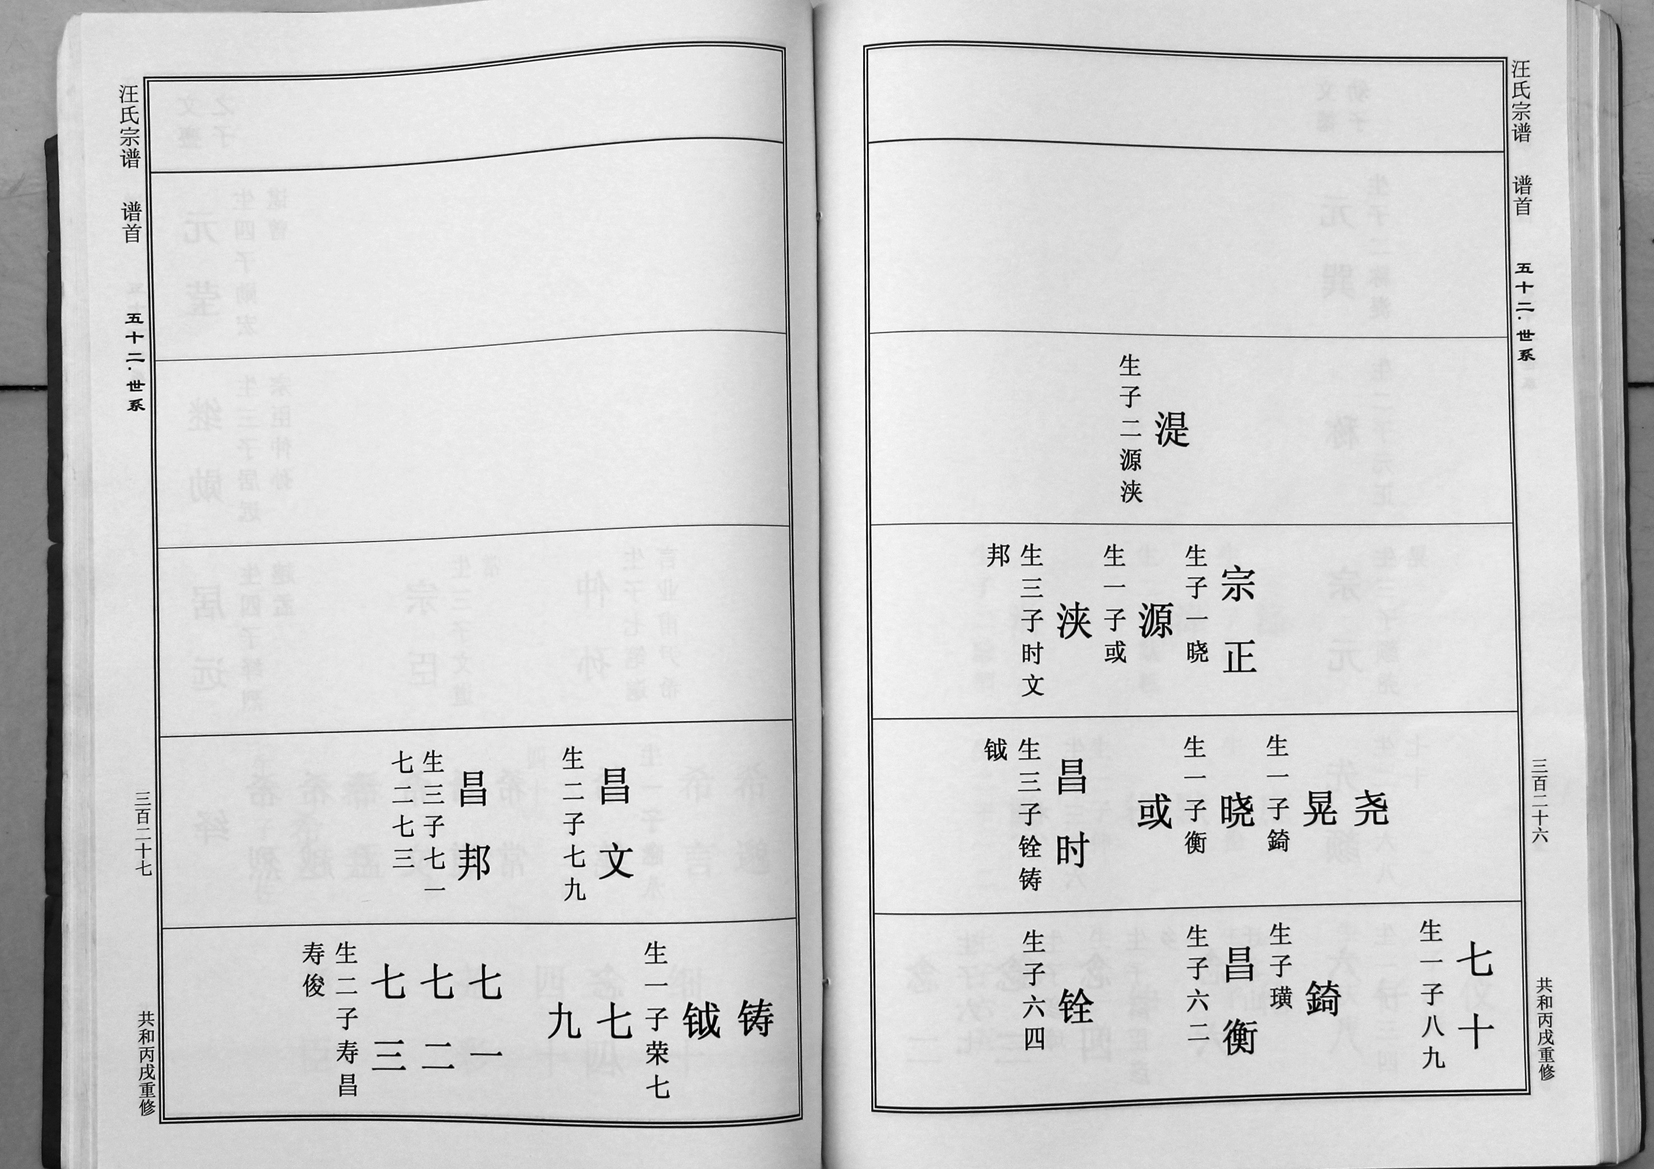 汪氏宗谱 谱首 五十二·世系 三百二十六 共和丙戌重修
湜
生子二源浃
宗正
生子一晓
源
生一子或
浃
生三子时文
邦
尧
晃
生一子錡
晓
生一子衡
或
昌时
生三子铨铸
钺
七十
生一子八九
錡
生子璜
昌衡
生子六二
铨
生子六四
汪氏宗谱 谱首 五十二·世系 三百二十七 共和丙戌重修
昌文
生二子七九
昌邦
生三子七一
七二七三
铸
钺
生一子荣七
七
九
七一
七二
七三
生二子寿昌
寿俊